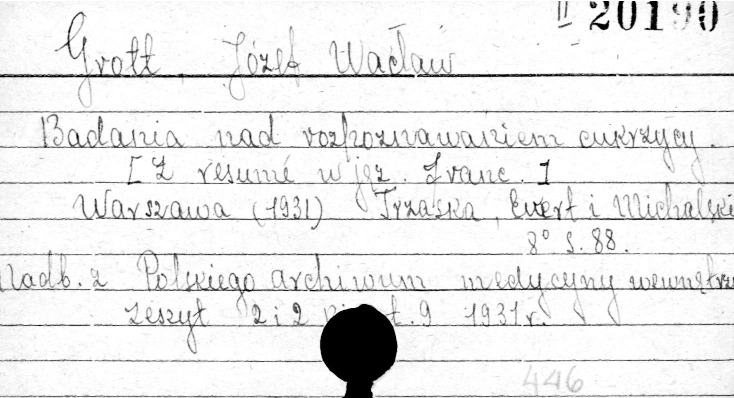 II 20190
Grott, Józef Wacław
Badania nad rozpoznawaniem cukrzycy.
[Z resumé w jęz. franc.]
Warszawa (1931) Trzaska, Evert i Michalski
8° s. 88.
Nadb. z Polskiego archiwum medycyny wewnętrzn
Zeszyt 2 i 2 t. 9 1931 r.
446